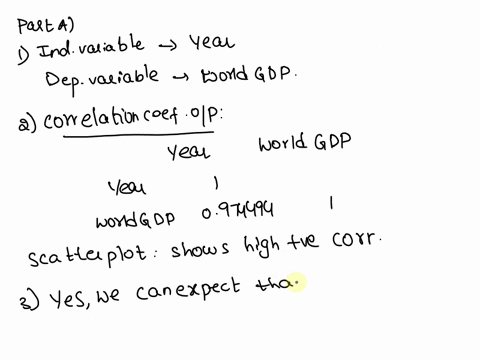 Part A)
1) Ind. variable → Year
Dep. variable → World GDP.
2) Correlation coef. O/P:
Year World GDP
Year 1
World GDP 0.974494 1
Scatterplot: shows high +ve corr.
3) Yes, we can expect tha